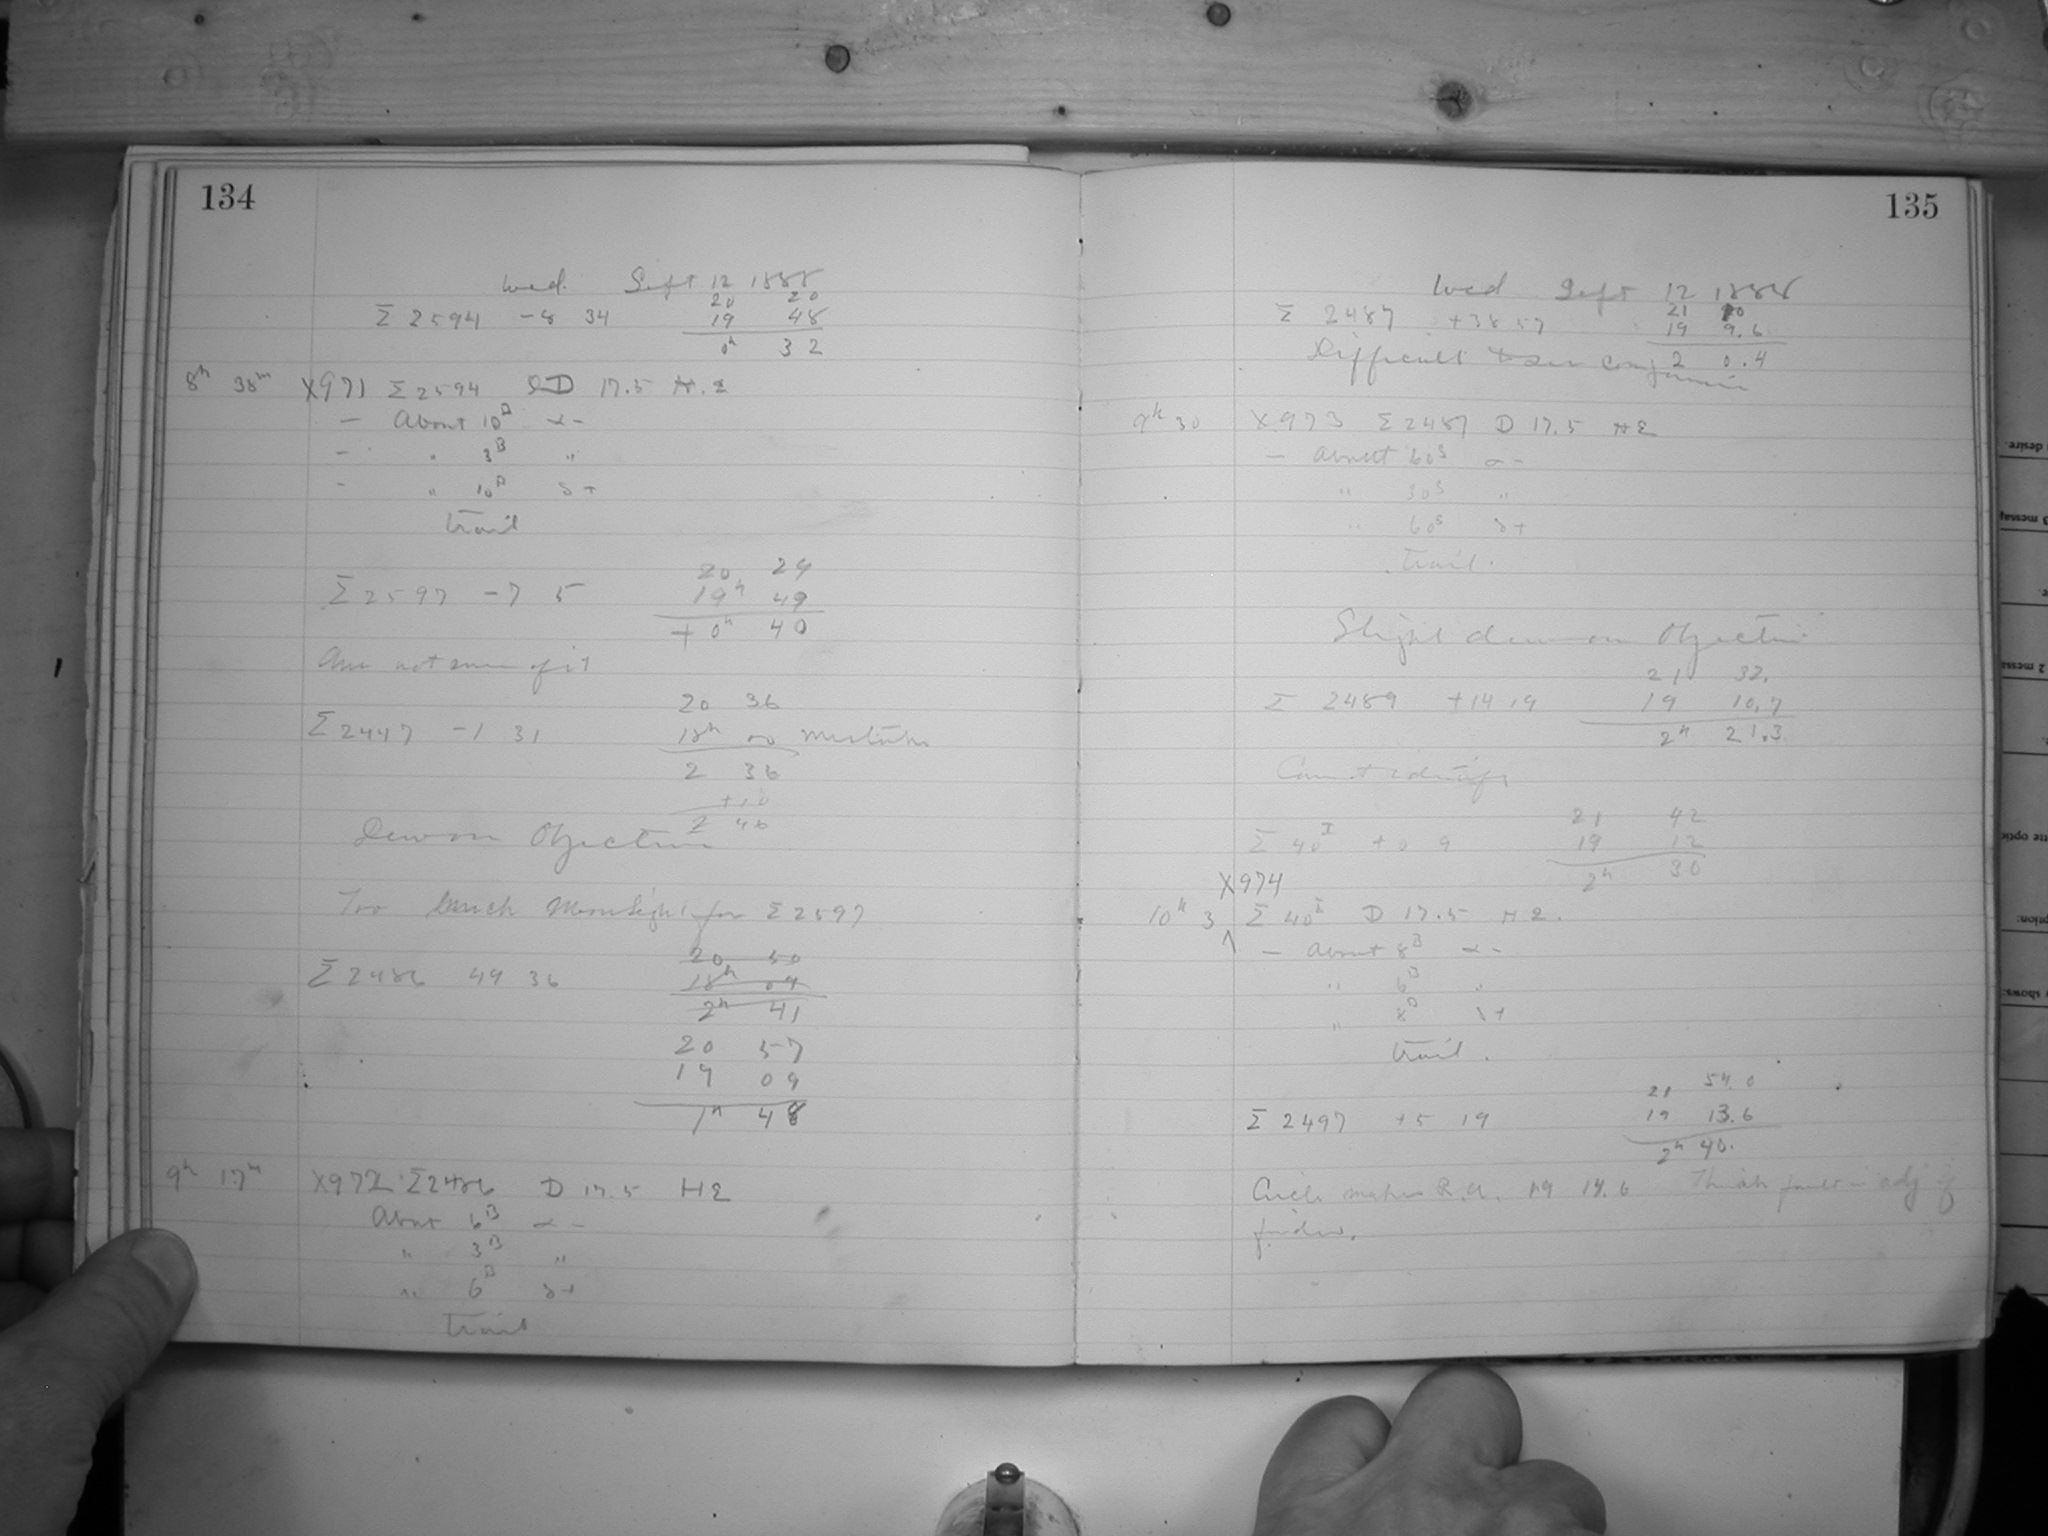 134
Wed. Sept 12 1888
20 20
Σ 2594 -8 34 19 48
0h 32
8h 38m X971 Σ2594 D 17.5 H.2
- About 10B α-
- " 3B "
- " 10B δ+
trail
20 29
Σ2597 -7 5 19h 49
+0h 40
Am not sure of it
20 36
Σ2447 -1 31 18h 00 mistake
2 36
+10
2 46
Dew on Objective
Too much Moonlight for Σ2597
20 50
Σ2486 49 36 18h 09
2h 41
20 57
19 09
1h 48
9h 17m X972 Σ2486 D 17.5 H2
About 6B α-
" 3B "
" 6B δ+
trail
135
Wed Sept 12 1888
21 10
Σ 2487 +38 57 19 9.6
2 0.4
Difficult to see companion
9h 30 X973 Σ2487 D 17.5 H2
- About 60s α-
" 30s "
" 60s δ+
trail.
Slight dew on Objective
21 32.
Σ 2489 +14 19 19 10.7
2h 21.3
Cannot identify
21 42
Σ 40I +0 9 19 12
2h 30
X974
10h 3 Σ 40I D 17.5 H2.
- About 8B α-
" 6B "
" 8B δ+
trail.
21 54.0
Σ 2497 +5 19 19 13.6
2h 40.
Circle makes R.A. 19 14.6 Think fault in adj of
finder.